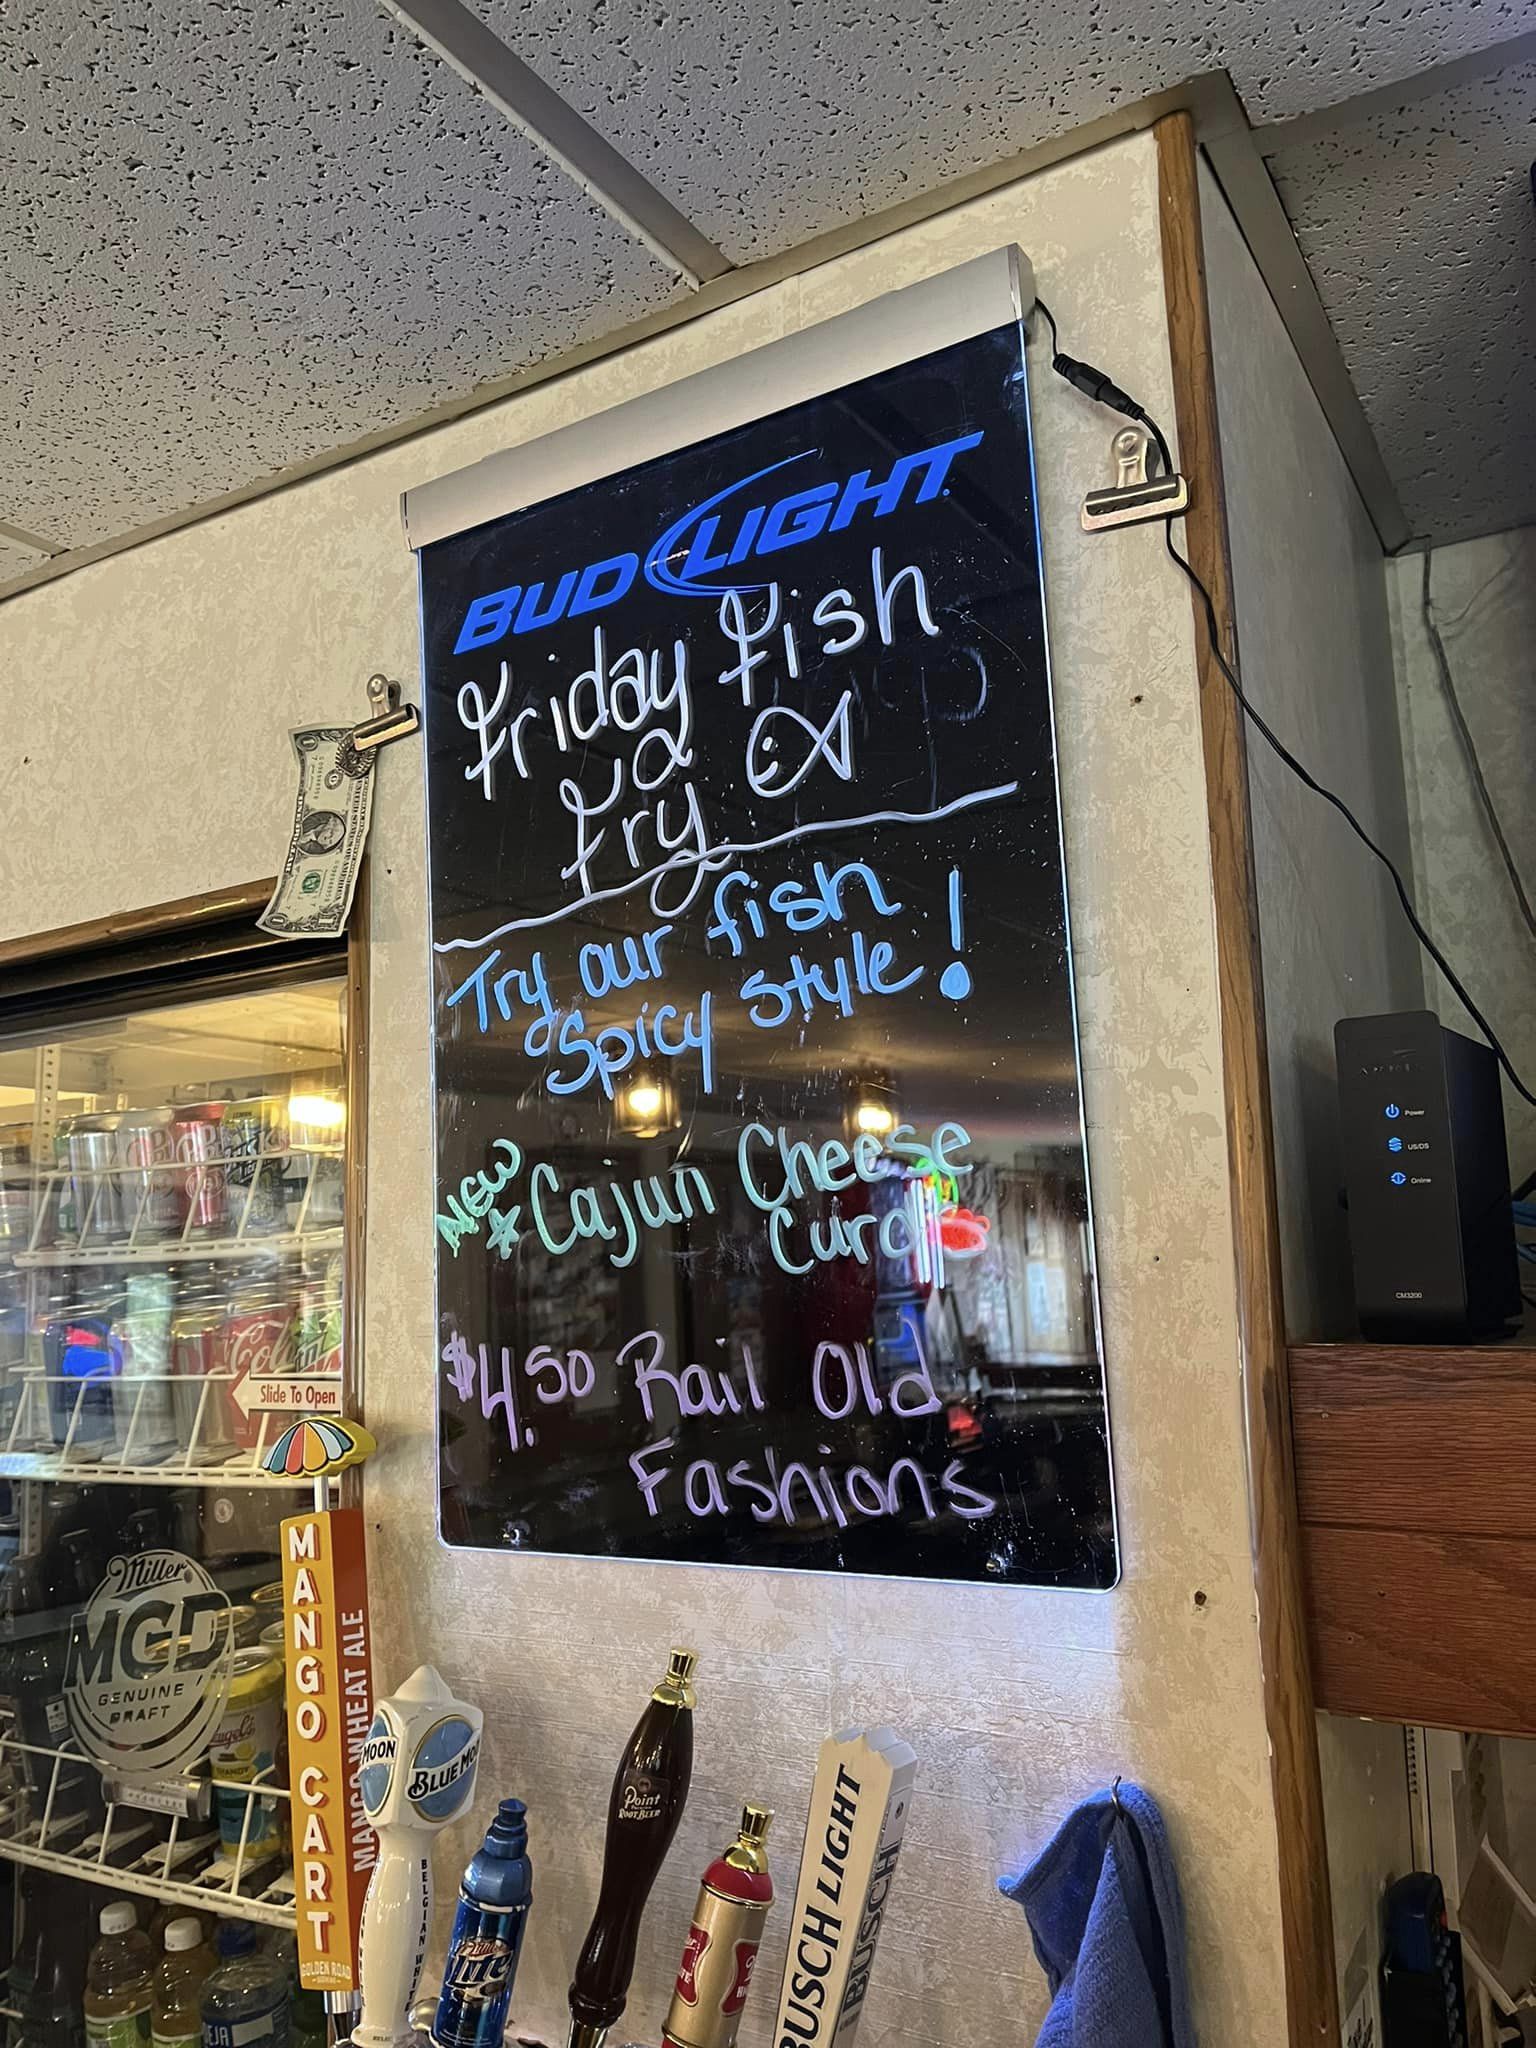 BUD LIGHT
Friday Fish
Fry
Try our fish
Spicy Style!
NEW
Cajun Cheese
Curd
$4.50 Rail Old
Fashions
Power
US/DS
Online
CM3200
Slide To Open
Miller
MGD
GENUINE
DRAFT
MANGO CART
MANGO WHEAT ALE
GOLDEN ROAD
MOON
BLUE MOON
BELGIAN WHITE
Miller
Lite
Point
ROOT BEER
BUSCH LIGHT
BUSCH